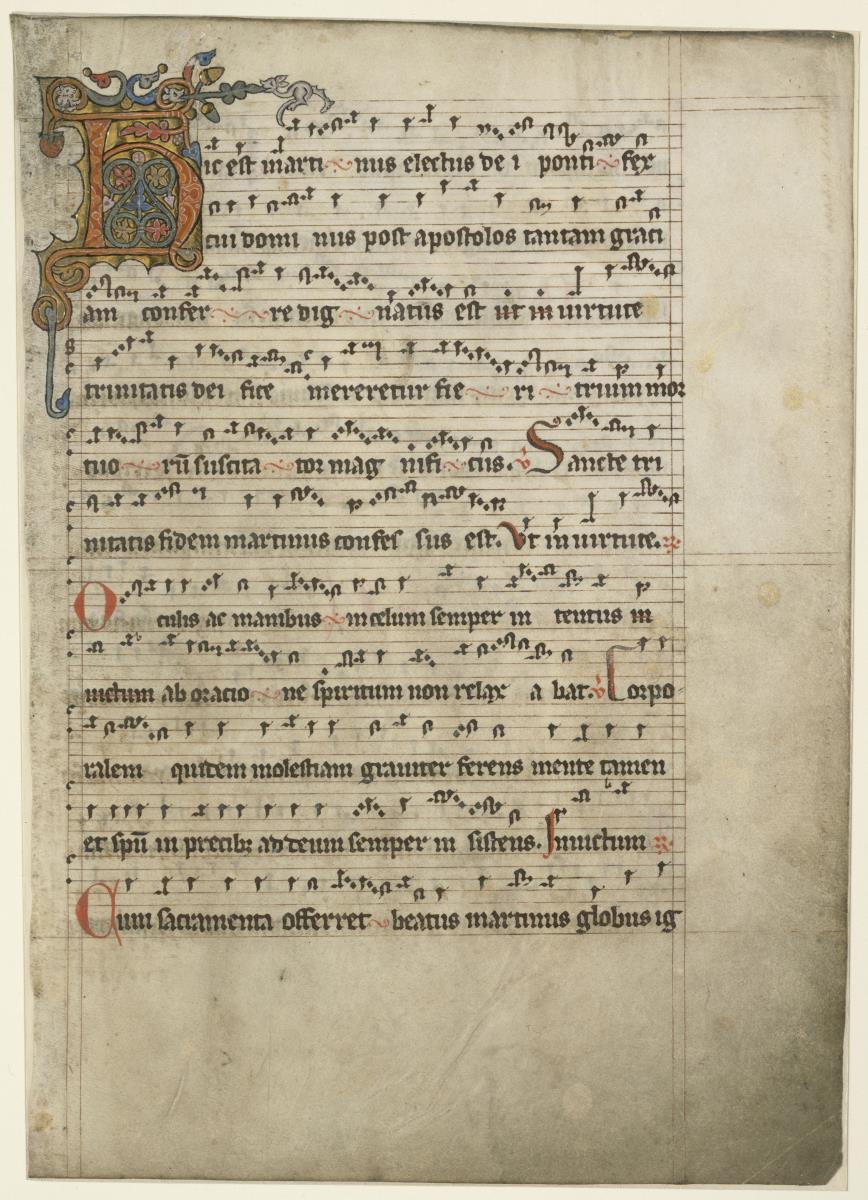 Hic est marti nus electus de i ponti fex
cui domi nus post apostolos tantam graci
am confer re dig natus est ut in uirtute
trinitatis dei fice mereretur fie ri trium mor
tuo rū suscita tor mag nifi cus. V Sancte tri
nitatis fidem martinus confes sus est. Vt in uirtute.
Oculis ac manibus in celum semper in tentus in
uictum ab oracio ne spiritum non relax a bat. V Corpo
ralem quidem molestiam grauiter ferens mente tamen
et spū in precib; ad deum semper in sistens. Inuictum
Cum sacramenta offerret beatus martinus globus ig